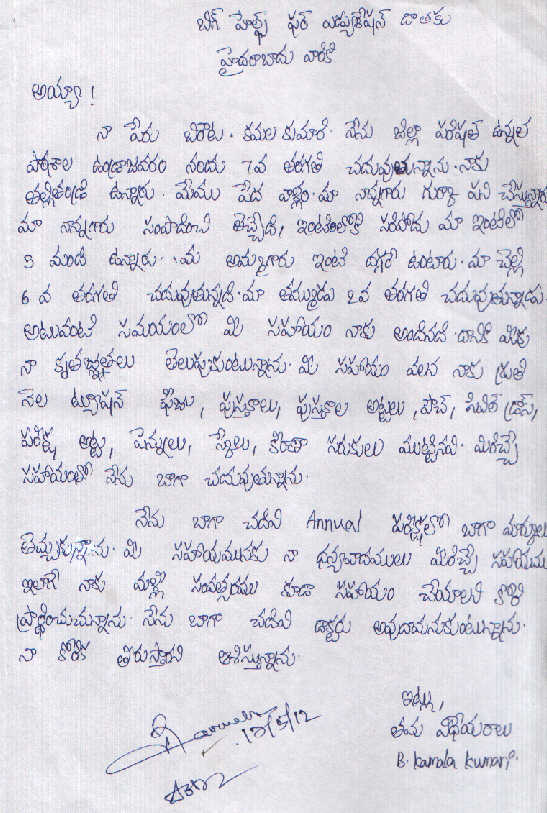 బిగ్ హెల్ప్ ఫర్ ఎడ్యుకేషన్ దాతకు
హైదరాబాదు వారికి
అయ్యా !
నా పేరు బిరెడు. కమల కుమారి. నేను జిల్లా పరిషత్ ఉన్నత
పాఠశాల ఉండ్రాజవరం నందు 7వ తరగతి చదువుతున్నాను. నాకు
తల్లితండ్రి ఉన్నారు. మేము పేద వాళ్లం. మా నాన్నగారు గుర్ఖా పని చేస్తున్నారు
మా నాన్నగారు సంపాదించి తెచ్చేది, ఇంటిలోకి సరిపోదు మా ఇంటిలో
5 మంది ఉన్నారు. మా అమ్మగారు ఇంటి దగ్గరే ఉంటారు. మా చెల్లి
6 వ తరగతి చదువుతున్నది. మా తమ్ముడు 2వ తరగతి చదువుతున్నాడు.
అటువంటి సమయంలో మీ సహాయం నాకు అందినది. దానికి మీకు
నా కృతజ్ఞతలు తెలుపుకుంటున్నాను. మీ సహాయం వలన నాకు ప్రతి
నెల ట్యూషన్ ఫీజు, పుస్తకాలు, పుస్తకాల అట్టలు, పౌచ్, సివిల్ డ్రెస్,
పరీక్ష అట్ట, పెన్నులు, స్కేలు, కిరాణా సరుకులు ముట్టినవి. మీరిచ్చే
సహాయంతో నేను బాగా చదువుతున్నాను.
నేను బాగా చదివి Annual పరీక్షలలో బాగా మార్కులు
తెచ్చుకున్నాను. మీ సహాయమునకు నా ధన్యవాదములు మీరిచ్చే సహాయము
ఇలాగే నాకు మళ్లీ సంవత్సరము కూడా సహాయం చేయాలని కోరి
ప్రార్థించుచున్నాను. నేను బాగా చదివి డాక్టరు అవుదామనుకుంటున్నాను.
నా కోరిక తీరుస్తారని ఆశిస్తున్నాను.
ఇట్లు,
తమ విధేయురాలు
B. Kamala Kumari.
10/5/12